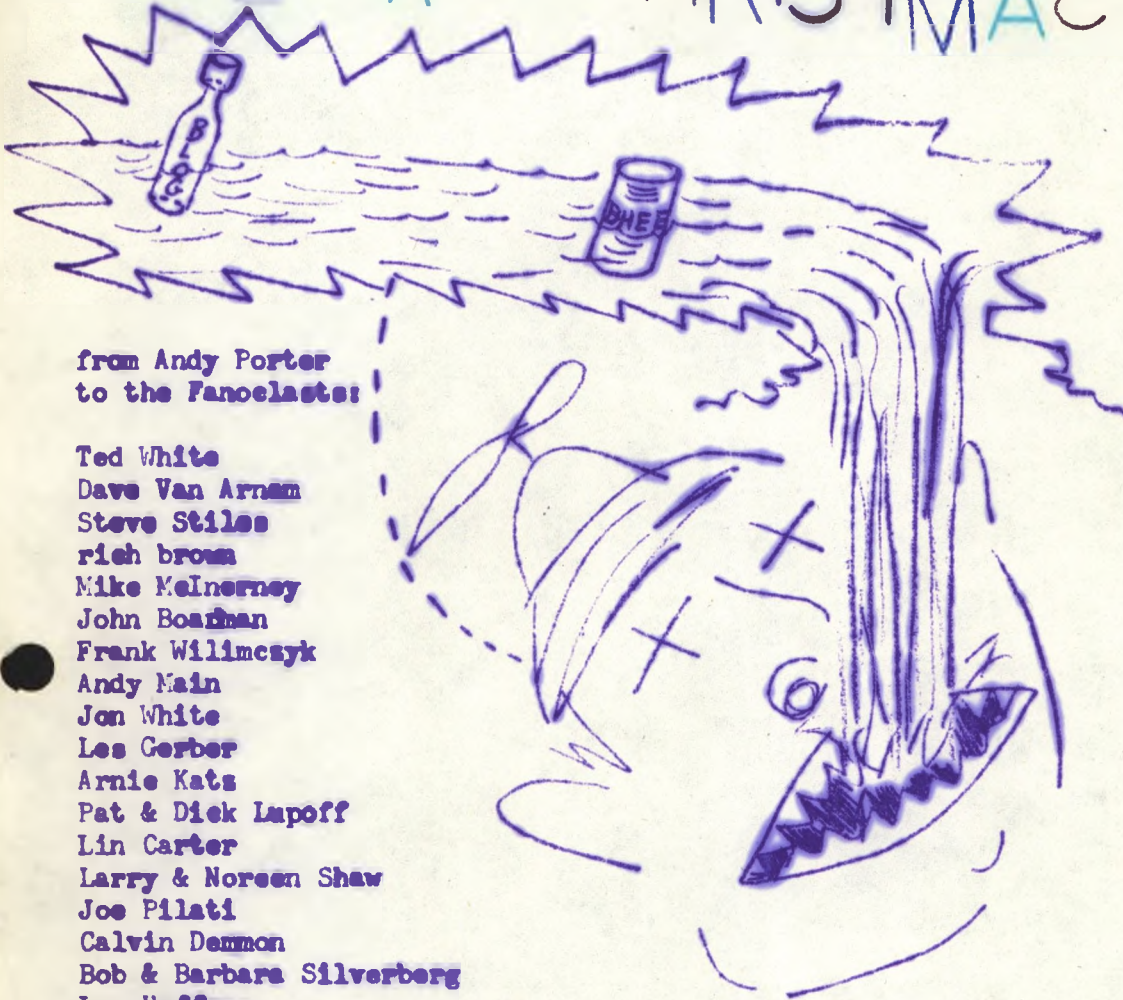 BLOG
BHEE
from Andy Porter
to the Fanoclasts:
Ted White
Dave Van Arnam
Steve Stiles
rich brown
Mike McInerney
John Boardman
Frank Wilimczyk
Andy Main
Jon White
Les Gerber
Arnie Katz
Pat & Dick Lupoff
Lin Carter
Larry & Noreen Shaw
Joe Pilati
Calvin Demmon
Bob & Barbara Silverberg